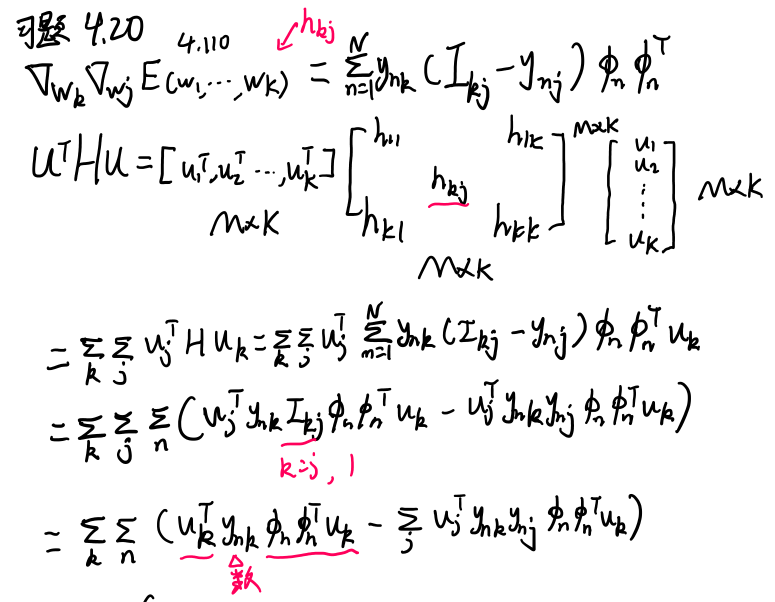 习题 4.20 4.110 h_{kj}
∇_{w_k} ∇_{w_j} E(w_1, ⋯, w_K) = Σ_{n=1}^{N} y_{nk} (I_{kj} - y_{nj}) φ_n φ_n^T
u^T H u = [u_1^T, u_2^T ⋯, u_K^T] [h_{11} h_{1K} h_{kj} h_{K1} h_{KK}] M×K [u_1 u_2 ⋮ u_K] M×K
M×K
M×K
= Σ_k Σ_j u_j^T H u_k = Σ_k Σ_j u_j^T Σ_{n=1}^{N} y_{nk} (I_{kj} - y_{nj}) φ_n φ_n^T u_k
= Σ_k Σ_j Σ_n (u_j^T y_{nk} I_{kj} φ_n φ_n^T u_k - u_j^T y_{nk} y_{nj} φ_n φ_n^T u_k)
k=j, 1
= Σ_k Σ_n (u_k^T y_{nk} φ_n φ_n^T u_k - Σ_j u_j^T y_{nk} y_{nj} φ_n φ_n^T u_k)
数